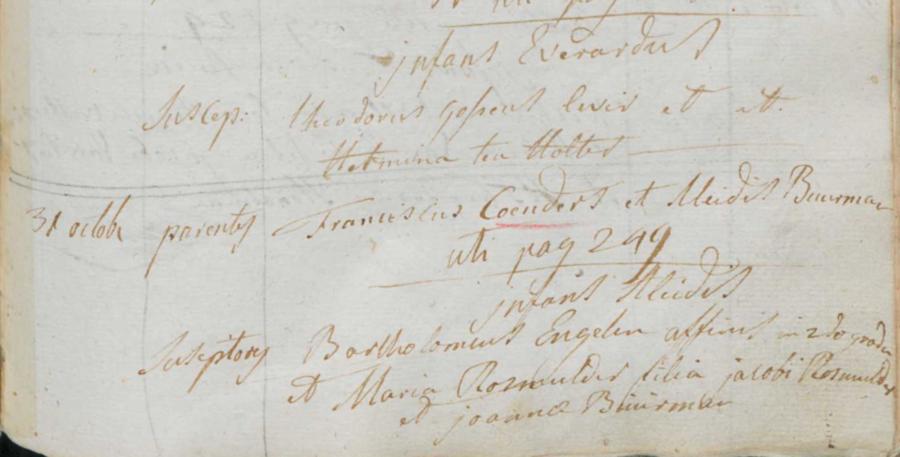 infans Everardus
Suscep: theodorus gossens levir et et.
Hermina ten Holter
31 octobr parentes Franciscus Coenders et Aleidis Buurman
uti pag 299
infans Aleidis
Susceptores Bartholomeus Engelen affinis in 2do gradu
et Maria Rosmulder filia jacobi Rosmulder
et joannæ Buurman